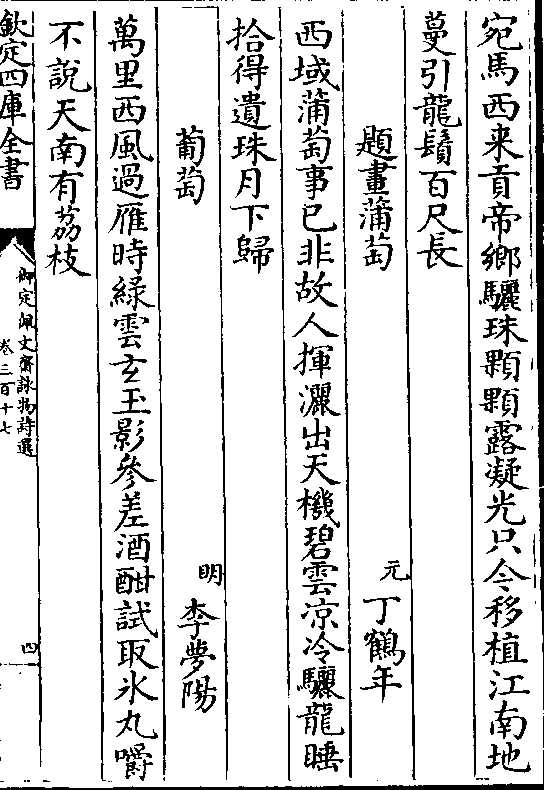 宛馬西来貢帝鄉驪珠顆顆露凝光只今移植江南地
蔓引龍鬚百尺長
題畫蒲萄
元 丁鶴年
西域蒲萄事已非故人揮灑出天機碧雲凉冷驪龍睡
拾得遺珠月下歸
葡萄
明 李夢陽
萬里西風過雁時綠雲玄玉影參差酒酣試取氷丸嚼
不說天南有荔枝
欽定四庫全書
御定佩文齋詠物詩選
卷三百十七
四